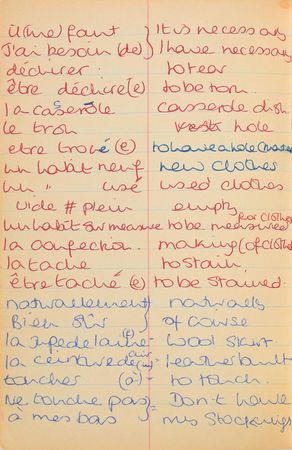 il (me) faut } It is necessary
J'ai besoin (de) } I have necessary
déchirer to tear
être déchiré (e) to be torn.
la casserole casserole dish
le trou hole
etre troué (e) to have a hole
un habit neuf new clothes
un " usé used clothes
vide # plein empty
un habit sur mesure to be measured for clothes
la confection making (of clothes
la tache to stain.
être taché (e) to be stained.
naturellement } naturally
Bien sûr } of course
la jupe de laine - wool skirt
la ceinture de cuir = leather bult
toucher (à) - to touch.
ne touche pas } = Don't have
à mes bas } mes stockings